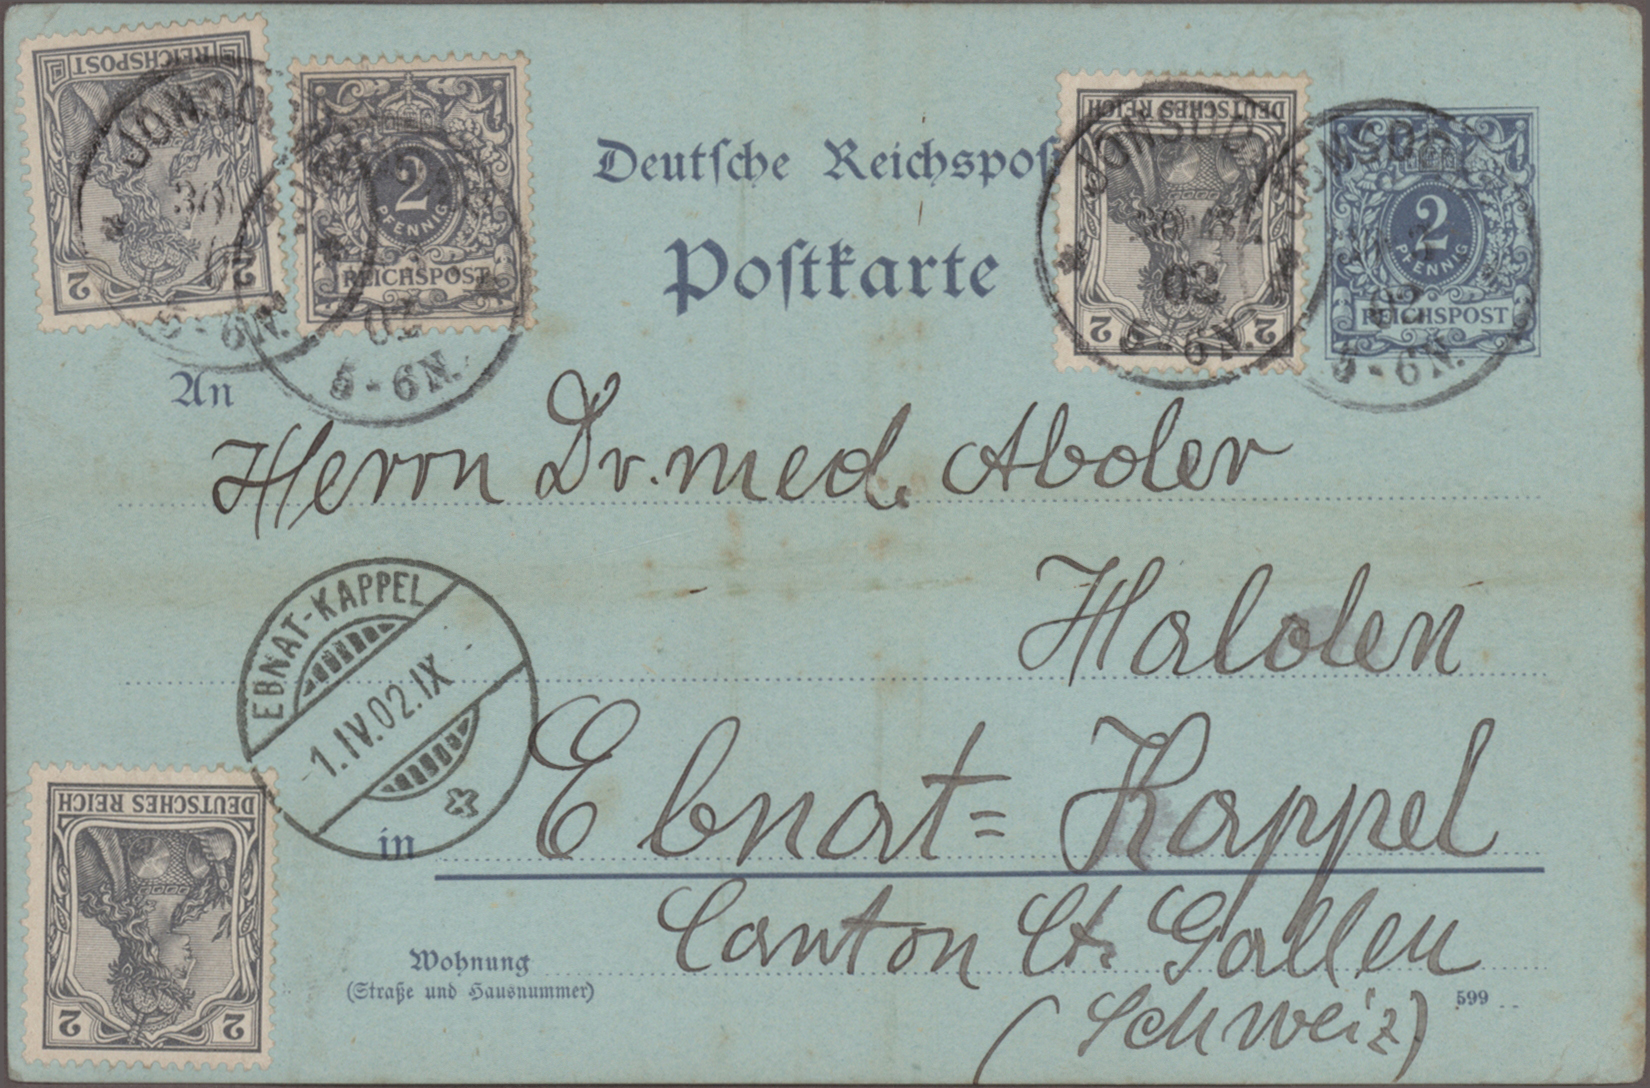 REICHSPOST
2 2
2
PFENNIG
REICHSPOST
DEUTSCHES REICH
2 2
2
PFENNIG
REICHSPOST
02
5-6N.
02
5-6N.
02
5-6N.
5-6N.
Deutsche Reichspost
Postkarte
An
Herrn Dr. med. Aboler
Halden
EBNAT-KAPPEL
1.IV.02.IX
in
Ebnat= Kappel
Canton St. Gallen
Wohnung
(Straße und Hausnummer)
599
(Schweiz)
DEUTSCHES REICH
2 2